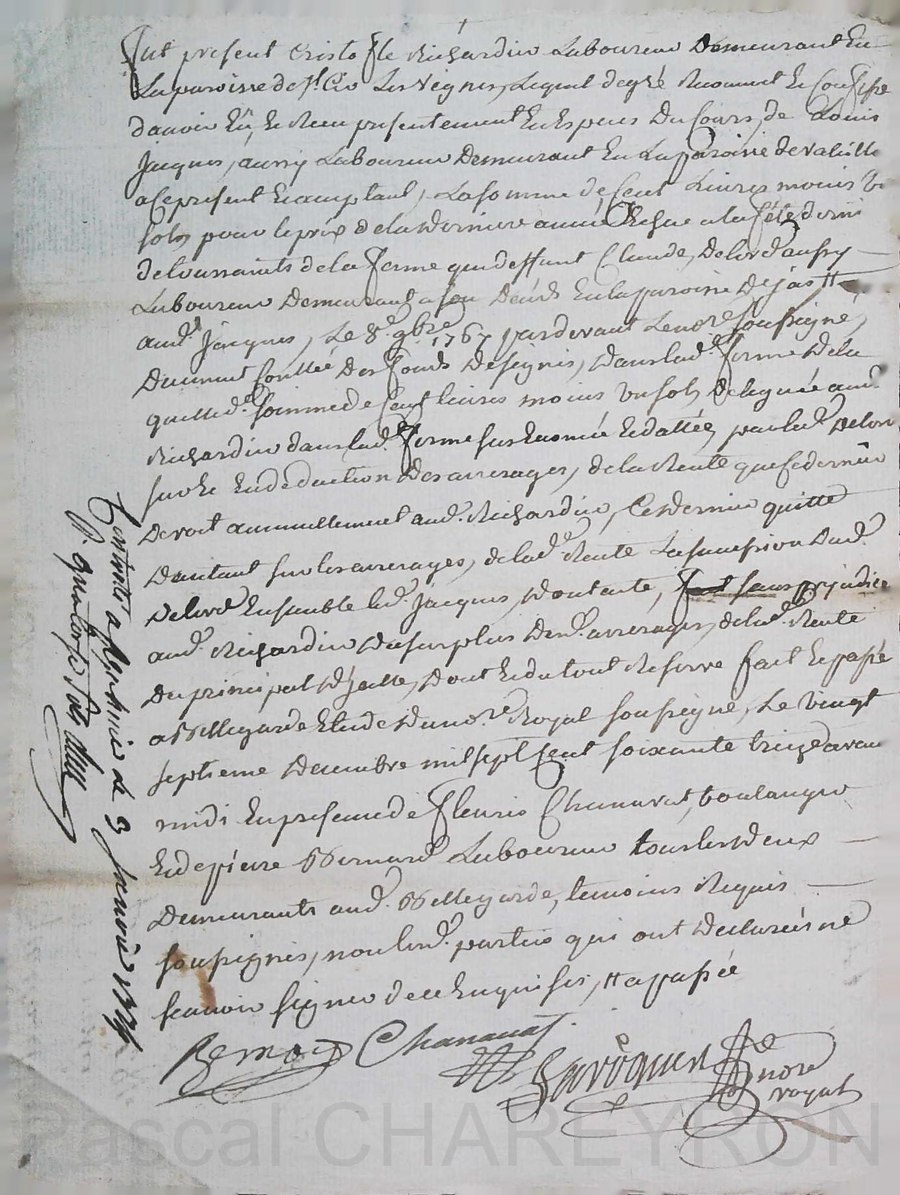 fut présent Cristofle Richardier Laboureur Demeurant En
La paroisse de St. Cir Les vignes, Lequel de gré Reconnut Et Confesse
d'avoir Eü, Et Reçu présentement En Especes Du Cours, de Louis
Jacques, aussy Laboureur Demeurant En La paroisse de valeille
a Ce présent Et acceptant, La somme de Cent Livres moins un
sols pour le prix de la derniere année Echue a la fête de
de la ferme que deffunt Claude, Delord
Laboureur Demeurant a son Décéds En la paroisse De jas
aud. Jacques, Le 8e. 9bre. 1767 pardevant Le no.re soussigné,
Duement Conllée Des fonds Designés, dans lad. ferme De la
quelle d. somme de Cent livres moins un sols deleguée aud.
Richardier dans lad. ferme sus Enoncée Et dattée, par led. Delord
sur Et En deduction Des arrerages, de la Rente que Ce dernier
Devoit annuellement aud. Richardier, Ce dernier quitte
D'autant sur les arrerages, de lad. Rente La Dud.
Delord Ensemble led. Jacques, D'autant, fait sans préjudice
aud. Richardier Du surplus Desd. arrerages, de lad. Rente
Du principal D'jcelle, Dont Et du tout Reserve fait Et passé
a Bellegarde Etude Du no.re Royal soussigné, Le vingt
septieme Decembre mil sept Cent soixante treize avant
midi En presence de fleurie Chanavat, boulanger
Et de pierre Bernard Laboureur tous les deux
Demeurants aud. Bellegarde, temoins Requis
soussignés, non les d. parties qui ont Declarées ne
scavoir signer de ce Enquises,
Bernard Chanavat
no.re
royal
Controllé a le 3 janvier 1774
R. quatorze sols
Pascal CHAREYRON